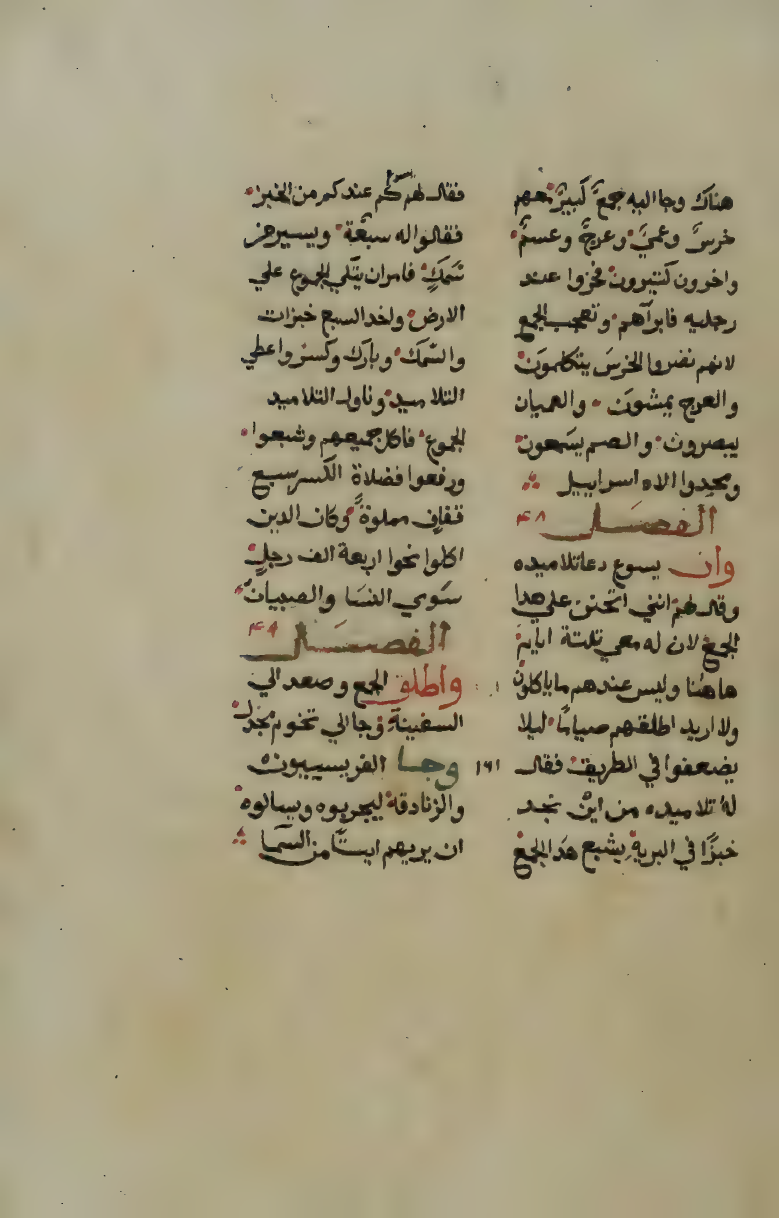 هناك وجا اليه جمعٌ كبيرٌ معهم
خرسٌ وعميٌ وعرجٌ وعسمٌ
واخرون كتيرون فخروا عند
رجليه فابراهم وتعجب الجمع
لانهم نضروا الخرس يتكلمون
والعرج يمشون والعميان
يبصرون والصم يسمعون
ومجدوا الاه اسراييل
الفصل ٤٨
وان يسوع دعا تلاميده
وقال لهم انني اتحنن علي هدا
الجمع لان له معي تلتة ايام
هاهنا وليس عندهم ما ياكلون
ولا اريد اطلقهم صيامًا ليلا
يضعفوا في الطريق فقال
له تلاميده من اين نجد
خبزًا في البرية يشبع هدا الجمع
فقال لهم يسوع كم عندكم من الخبز
فقالوا له سبعة ويسير من
سمكٍ فامر ان يتكي الجموع علي
الارض واخد السبع خبزات
والسمك وبارك وكسر واعطي
التلاميد وناول التلاميد
الجموع فاكل جميعهم وشبعوا
ورفعوا فضلاة الكسر سبع
قفافٍ مملوةً وكان الدين
اكلوا نحوا اربعة الف رجلٍ
سوي النسا والصبيان
الفصل ٤٩
واطلق الجمع وصعد الي
السفينة وجا الي تخوم مجدل
١٦١ وجا الفريسييون
والزنادقة ليجربوه وسالوه
ان يريهم ايتًا من السما